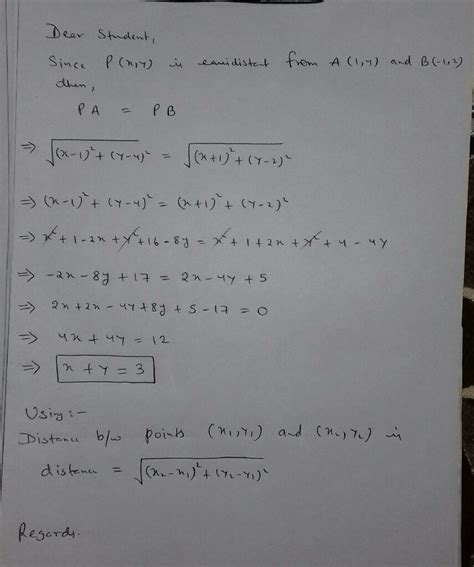 Dear Student,
Since P(x,y) is equidistant from A(1,4) and B(-1,2)
then,
PA = PB
⇒ √(x-1)² + (y-4)² = √(x+1)² + (y-2)²
⇒ (x-1)² + (y-4)² = (x+1)² + (y-2)²
⇒ x² + 1 - 2x + y² + 16 - 8y = x² + 1 + 2x + y² + 4 - 4y
⇒ -2x - 8y + 17 = 2x - 4y + 5
⇒ 2x + 2x - 4y + 8y + 5 - 17 = 0
⇒ 4x + 4y = 12
⇒ x + y = 3
Using :-
Distance b/w points (x₁,y₁) and (x₂,y₂) is
distance = √(x₂-x₁)² + (y₂-y₁)²
Regards.